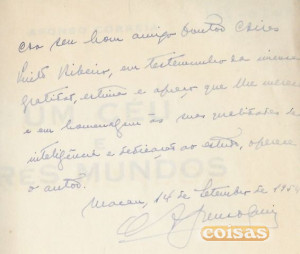 ao seu bom amigo Doutor Caires
Pinto Ribeiro, em testemunho da imensa
gratidão, estima e apreço que lhe merece
e em homenagem às suas qualidades de
inteligência e dedicação ao estudo, oferece
o autor.
Macau, 14 de Setembro de
coisas
UM CÉU
E
TRÊS MUNDOS